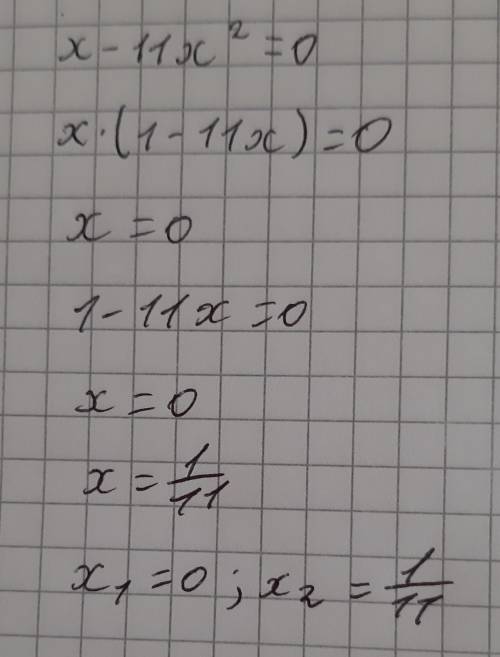 x - 11x² = 0
x · (1 - 11x) = 0
x = 0
1 - 11x = 0
x = 0
x = 1/11
x₁ = 0 ; x₂ = 1/11